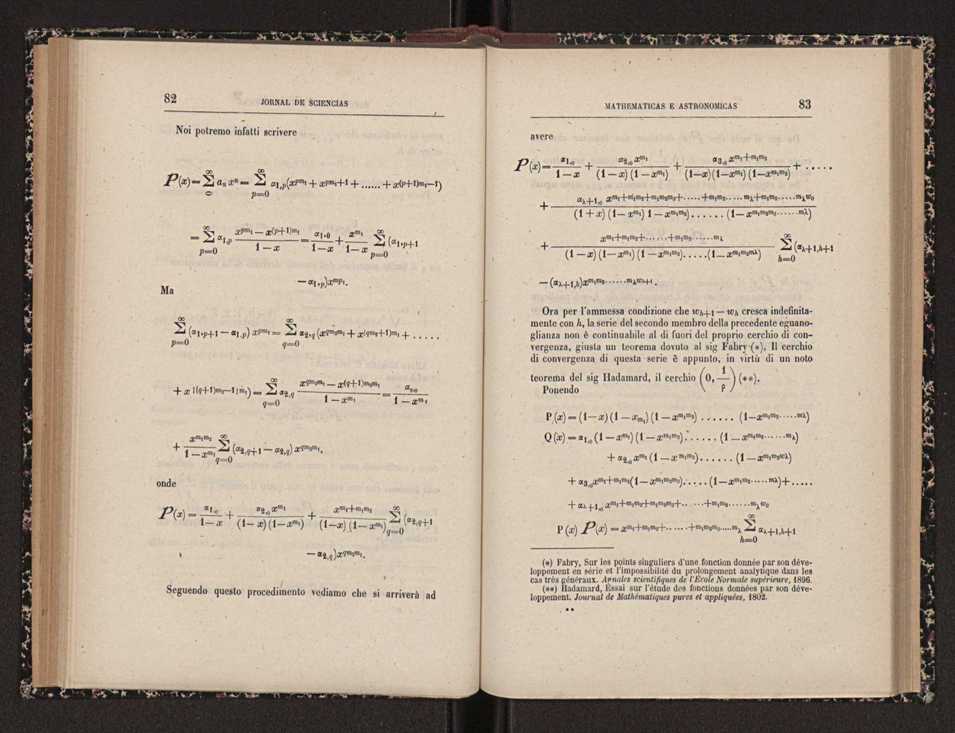 82
JORNAL DE SCIENCIAS
Noi potremo infatti scrivere
𝒫(x) = ∑_{0}^{∞} a_n x^n = ∑_{p=0}^{∞} α_{1,p}(x^{pm₁} + x^{pm₁+1} + ...... + x^{(p+1)m₁−1})
= ∑_{p=0}^{∞} α_{1,p} (x^{pm₁} − x^{(p+1)m₁})/(1 − x) = α_{1,0}/(1 − x) + x^{m₁}/(1 − x) ∑_{p=0}^{∞} (α_{1,p+1}
− α_{1,p})x^{mp₁}.
Ma
∑_{p=0}^{∞} (α_{1,p+1} − α_{1,p}) x^{pm₁} = ∑_{q=0}^{∞} α_{2,q} (x^{qm₂m₁} + x^{(qm₂+1)m₁} + .....
+ x^{((q+1)m₂−1)m₁}) = ∑_{q=0}^{∞} α_{2,q} (x^{qm₂m₁} − x^{(q+1)m₂m₁})/(1 − x^{m₁}) = α_{2,0}/(1 − x^{m₁})
+ x^{m₁m₂}/(1 − x^{m₁}) ∑_{q=0}^{∞} (α_{2,q+1} − α_{2,q}) x^{qm₂m₁},
onde
𝒫(x) = α_{1,0}/(1 − x) + α_{2,0}x^{m₁}/((1 − x)(1 − x^{m₁})) + x^{m₁+m₁m₂}/((1 − x)(1 − x^{m₁})) ∑_{q=0}^{∞} (α_{2,q+1}
− α_{2,q})x^{qm₂m₁}.
Seguendo questo procedimento vediamo che si arriverà ad
MATHEMATICAS E ASTRONOMICAS
83
avere
𝒫(x) = α_{1,0}/(1 − x) + α_{2,0} x^{m₁}/((1 − x)(1 − x^{m₁})) + α_{3,0} x^{m₁+m₁m₂}/((1−x)(1−x^{m₁})(1−x^{m₁m₂})) + .....
+ α_{λ+1,0} x^{m₁+m₁m₂+m₁m₂m₃+.....+m₁m₂.....m_λ+m₁m₂.....m_λw₀}/((1 + x)(1 − x^{m₁}) 1 − x^{m₁m₂}) ...... (1 − x^{m₁m₂m₃.....m_λ})
+ x^{m₁+m₁m₂+......+m₁m₂.....m_λ}/((1 − x)(1 − x^{m₁})(1 − x^{m₁m₂}).....(1 − x^{m₁m₂m_λ})) ∑_{h=0}^{∞} (α_{λ+1,h+1}
− (α_{λ+1,h})x^{m₁m₂......m_λw_{h+1}}.
Ora per l'ammessa condizione che w_{h+1} − w_h cresca indefinita-
mente con h, la serie del secondo membro della precedente eguano-
glianza non è continuabile al di fuori del proprio cerchio di con-
vergenza, giusta un teorema dovuto al sig Fabry (*). Il cerchio
di convergenza di questa serie è appunto, in virtù di un noto
teorema del sig Hadamard, il cerchio (0, 1/ρ) (**).
Ponendo
P(x) = (1−x)(1 − x^{m₁})(1 − x^{m₁m₂}) ...... (1−x^{m₁m₂.....m_λ})
Q(x) = α_{1,0}(1 − x^{m₁})(1 − x^{m₁m₂}) ...... (1 − x^{m₁m₂......m_λ})
+ α_{2,0}x^{m₁}(1 − x^{m₁m₂}) ...... (1 − x^{m₁m₂w_λ})
+ α_{3,0}x^{m₁+m₁m₂}(1 − x^{m₁m₂}) ..... (1 − x^{m₁m₂.....m_λ}) + .....
+ α_{λ+1,0} x^{m₁+m₁m₂+m₁m₂m₃+....+m₁m₂......m_λw₀}
P(x) 𝒫(x) = x^{m₁+m₁m₂+......+m₁m₂m₃.....m_λ} ∑_{h=0}^{∞} α_{λ+1,h+1}
(*) Fabry, Sur les points singuliers d'une fonction donnée par son déve-
loppement en série et l'impossibilité du prolongement analytique dans les
cas très généraux. Annales scientifiques de l'École Normale supérieure, 1896.
(**) Hadamard, Essai sur l'étude des fonctions données par son déve-
loppement. Journal de Mathématiques pures et appliquées, 1802.
**